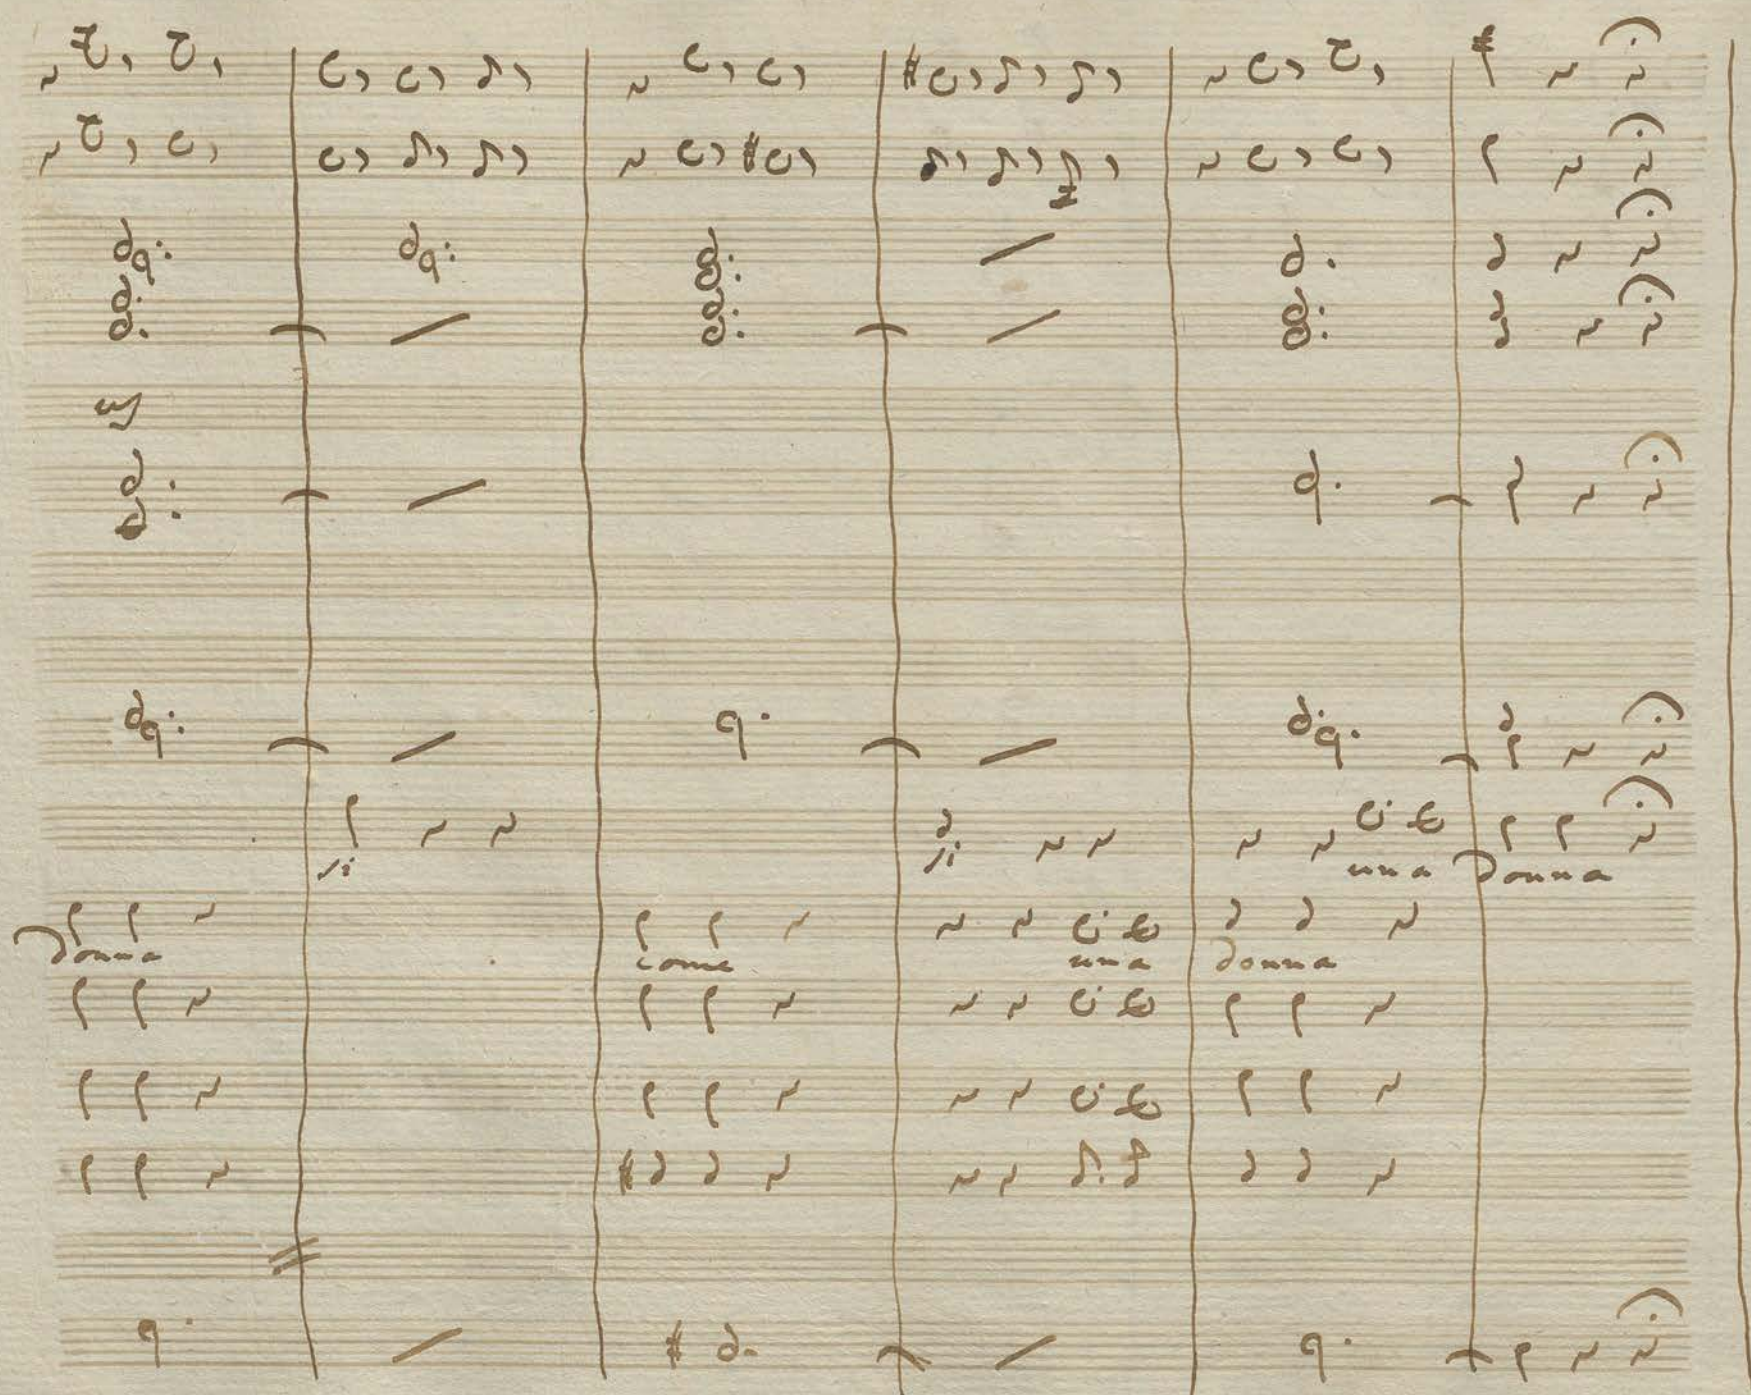 si si una Donna
Donna come una donna